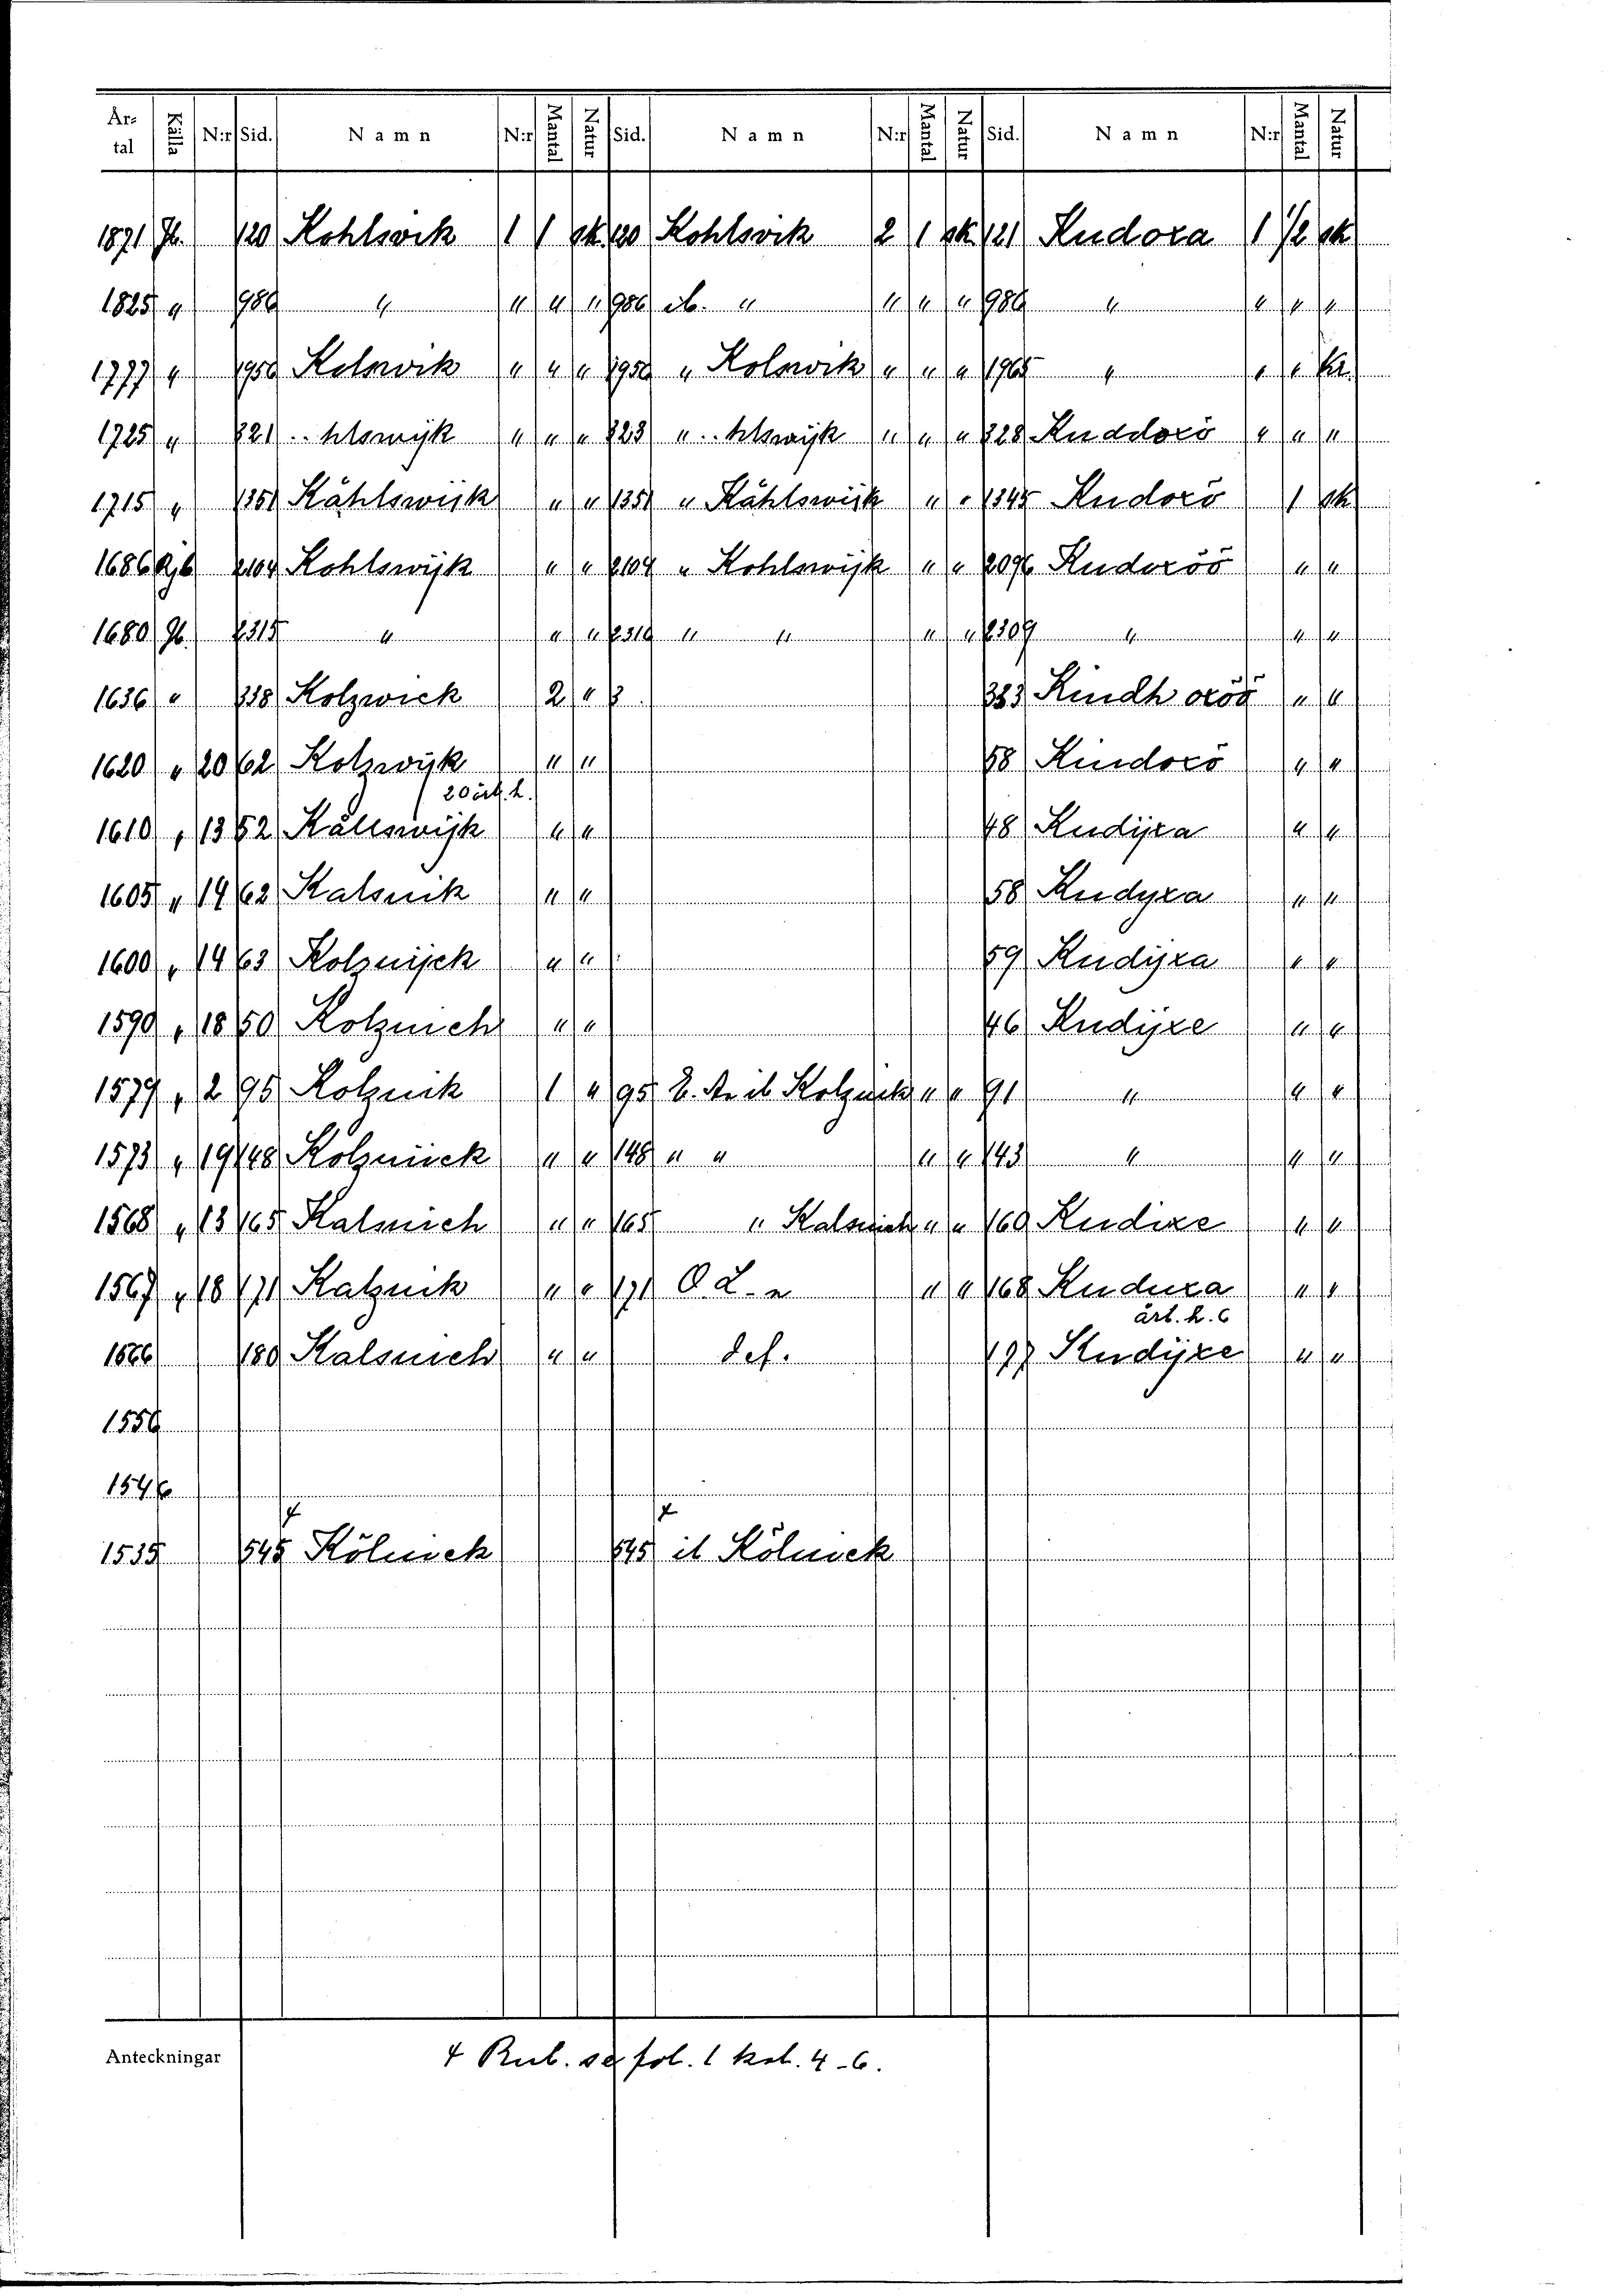 År-tal Källa N:r Sid. Namn N:r Mantal Natur Sid. Namn N:r Mantal Natur Sid. Namn N:r Mantal Natur
1871 Jb. 120 Kohlsvik 1 1 sk 120 Kohlsvik 2 1 sk 121 Kudora 1 1/2 sk
1825 " 986 " " " " 986 ib. " " " " 986 " " " "
1777 " 1956 Kolsvik " " " 1956 " Kolsvik " " " 1965 " " " kr.
1725 " 821 ..hlswijk " " " 823 " ..hlswijk " " " 828 Kuddorö " " "
1715 " 1351 Kåhlswijk " " 1351 " Kåhlswijk " " 1345 Kudorö 1 sk
1686 Rjb 2104 Kohlswijk " " 2104 " Kohlswijk " " 2096 Kudoröö " "
1680 Jb. 2315 " " " 2314 " " " " 2309 " " "
1636 " 338 Kolzwick 2 " 333 Kindh oröö " "
1620 " 20 62 Kolzwijk " " 58 Kindorö " "
20 ört. h.
1610 " 13 52 Kållswijk " " 48 Kudijra " "
1605 " 14 62 Kalsuik " " 58 Kudyra " "
1600 " 14 63 Kolsuijck " " 59 Kudijra " "
1590 " 18 50 Kolzuich " " 46 Kudijre " "
1579 " 2 95 Kolzuik 1 " 95 ib Kolzuick " " 91 " " "
1573 " 19 148 Kolzuiick " " 148 " " " " 143 " " "
1568 " 13 165 Kalsuich " " 165 " Kalsuich " " 160 Kudire " "
1567 " 18 171 Kalzuik " " 171 O. L. " " " 168 Kudura " "
ärt. h. 6
1566 180 Kalsuich " " def. 177 Kudijre " "
1556
1546
1535 545 Köluick 545 ib Köluick
Anteckningar
+ Rub. se fol. 1 kol. 4-6.